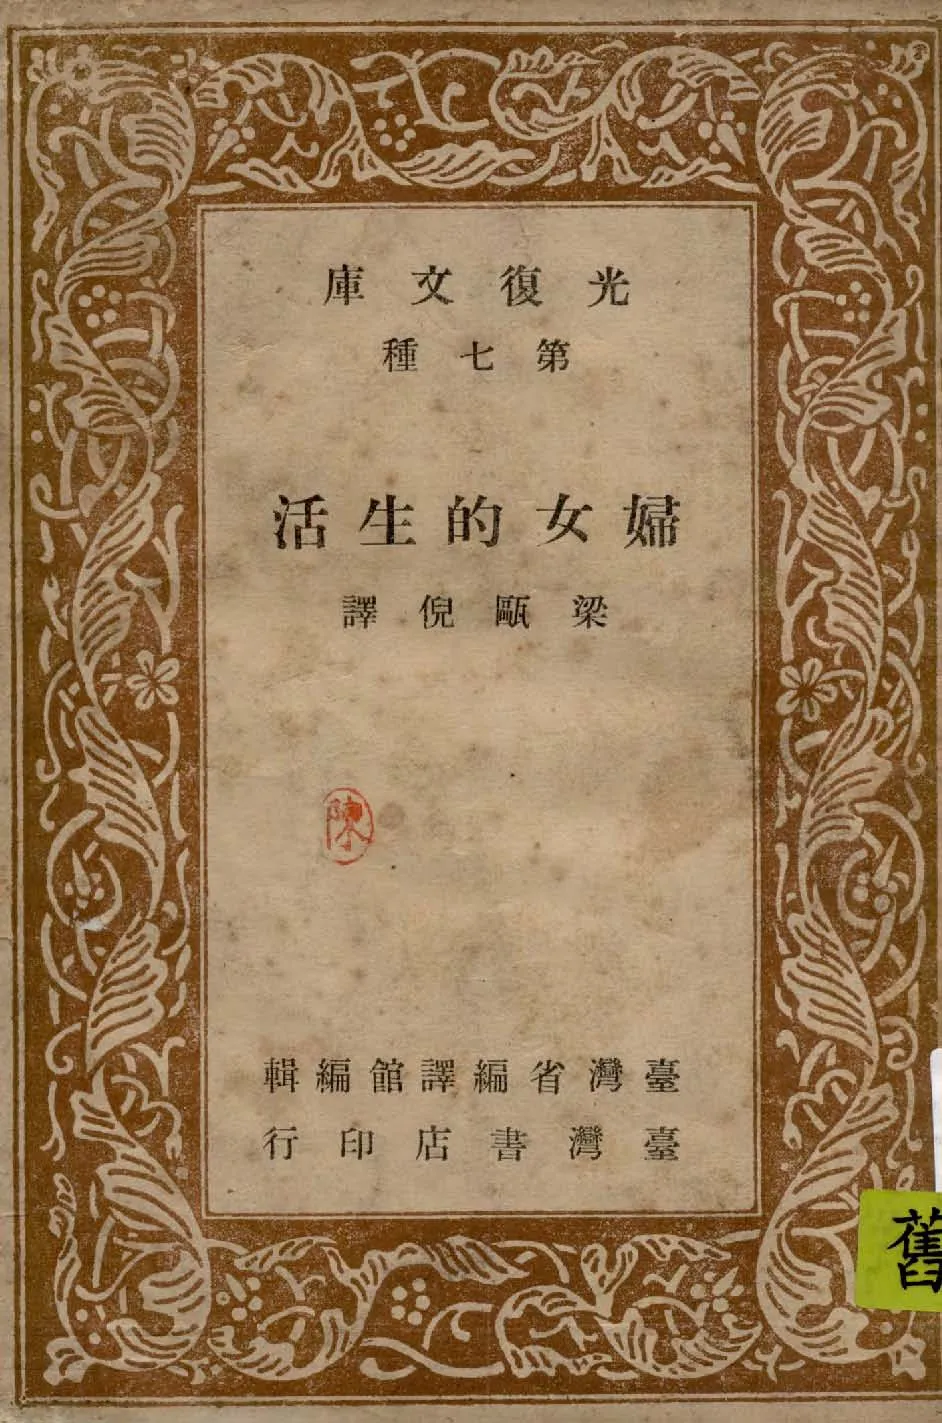 光復文庫
第七種
婦女的生活
梁甌倪譯
陳
臺灣省編譯館編輯
臺灣書店印行
舊